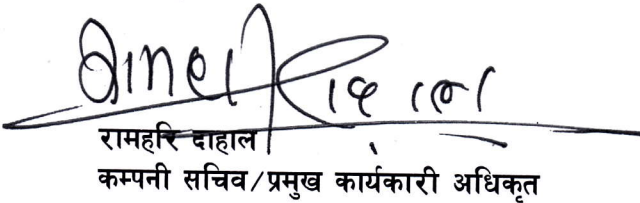 रामहरि दाहाल
कम्पनी सचिव/प्रमुख कार्यकारी अधिकृत